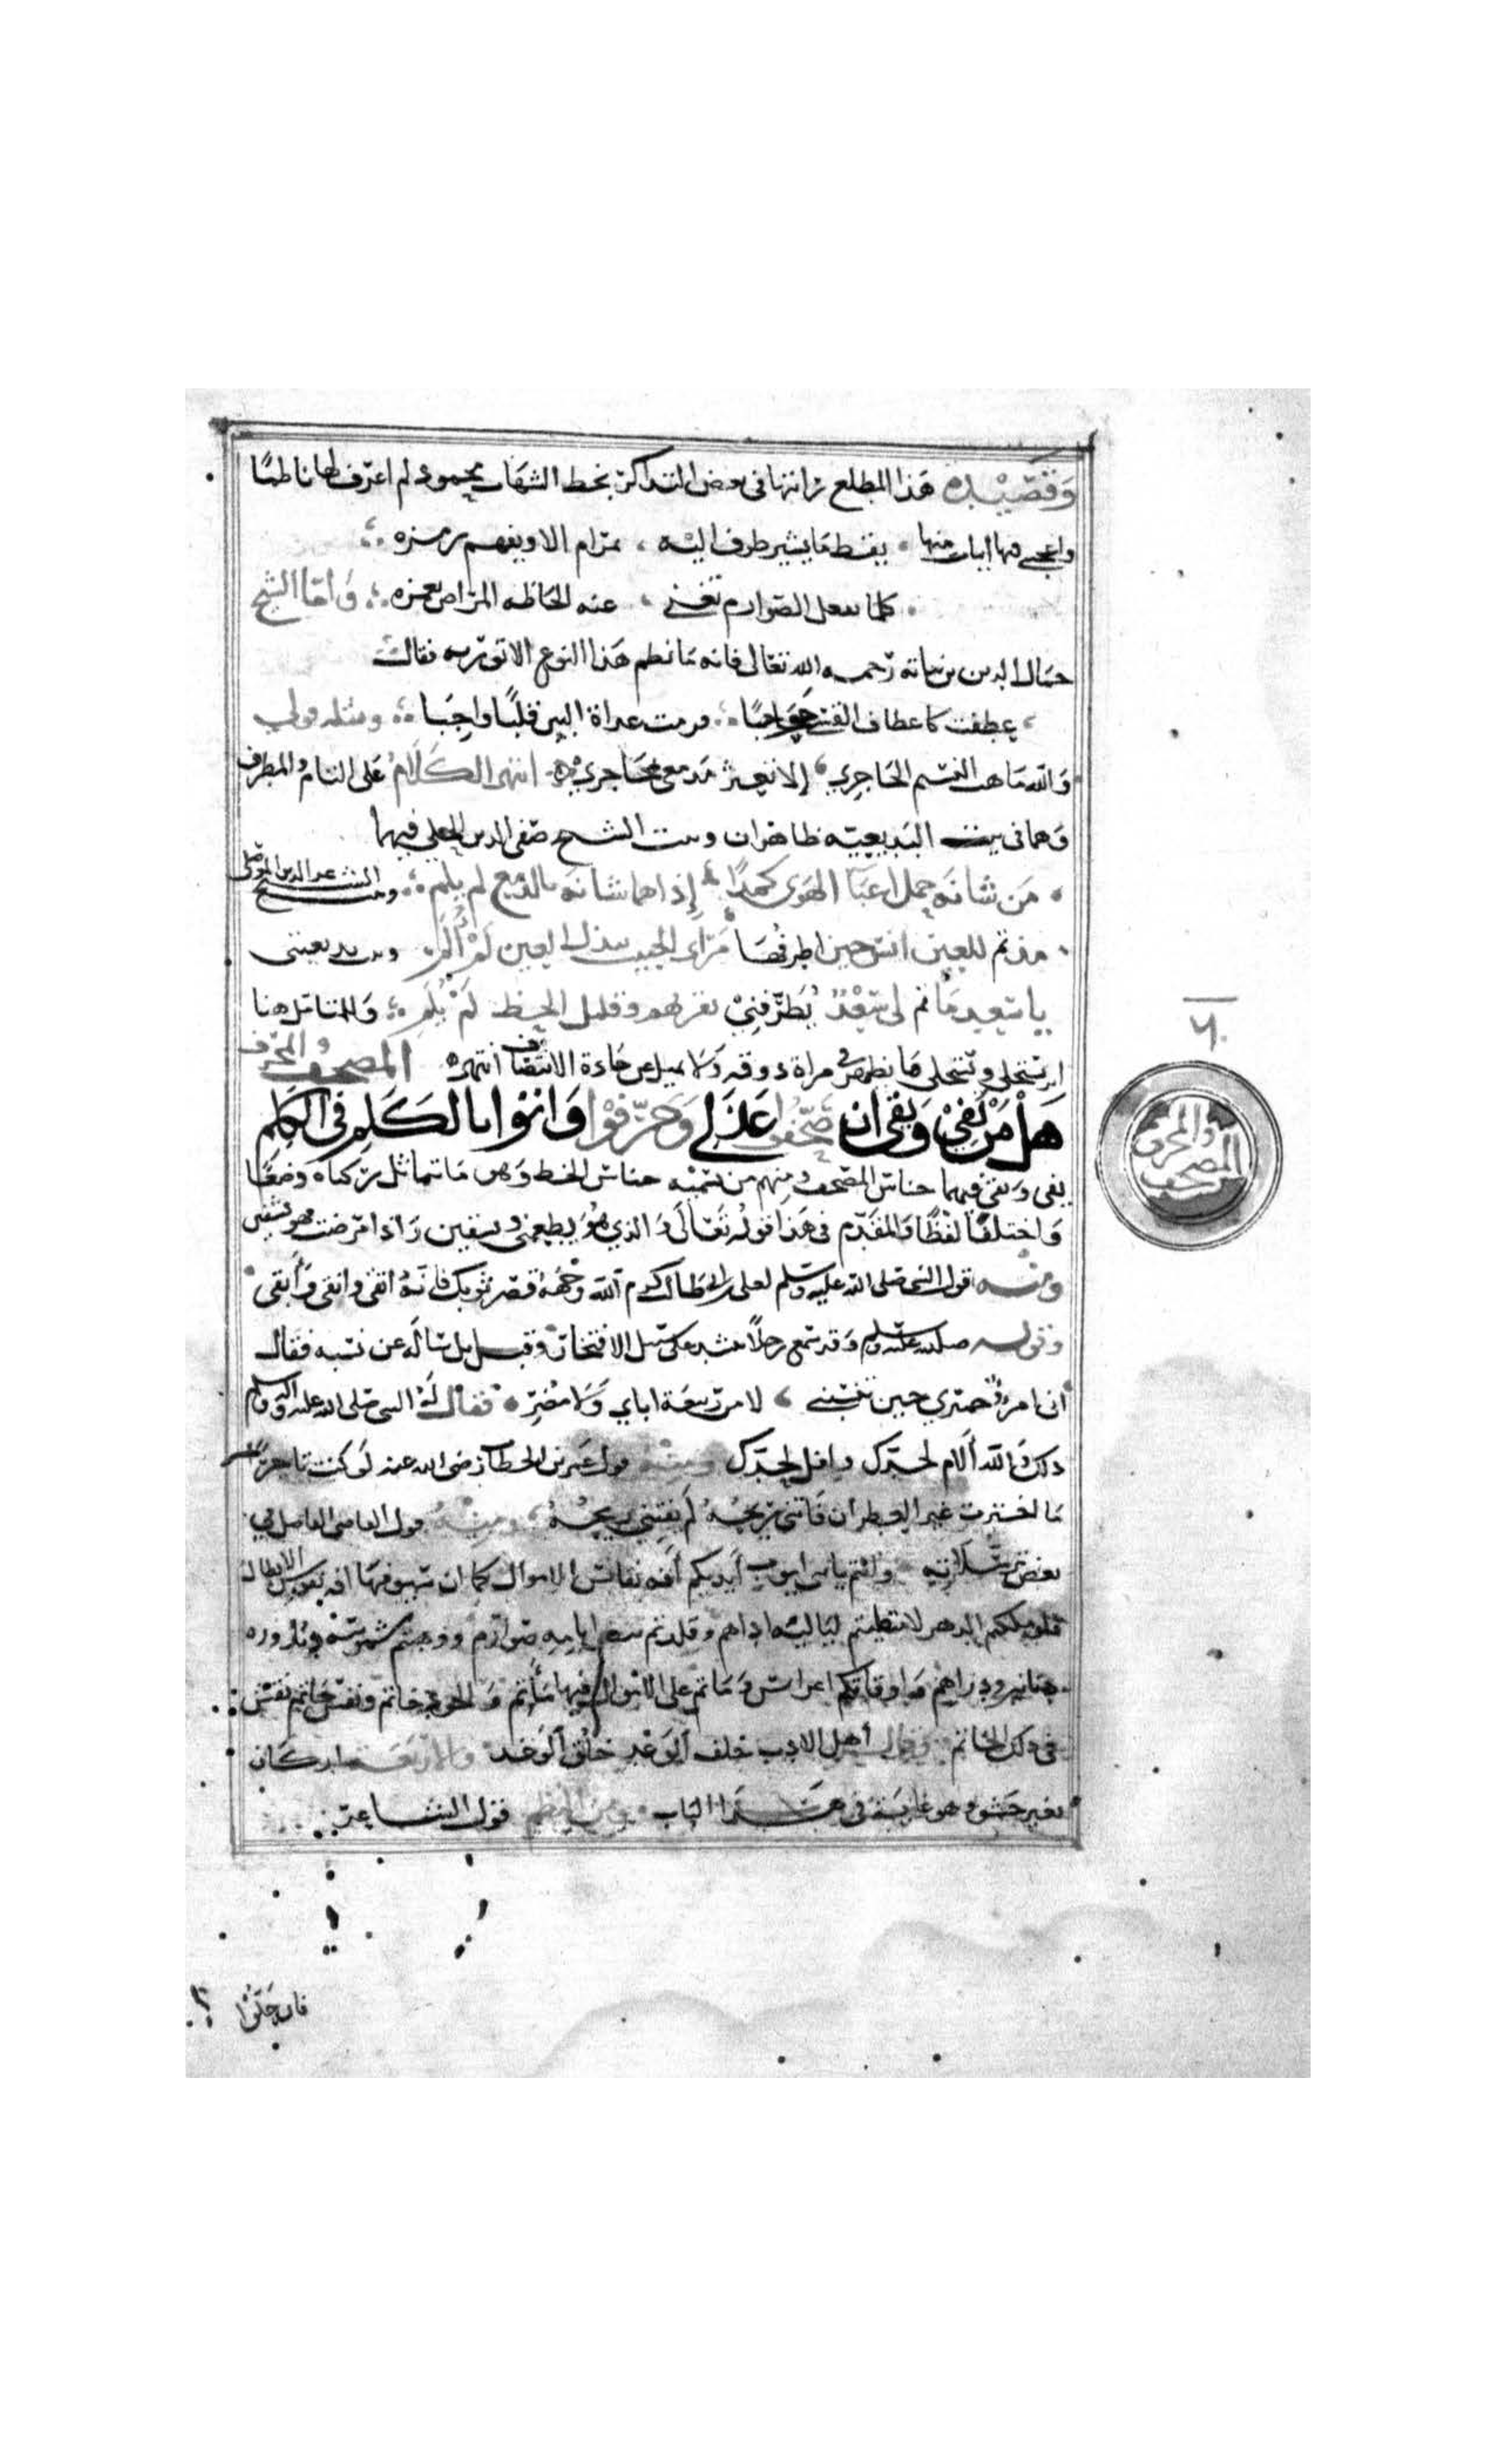 وقصيده هذا المطلع رايتها في بعض التذاكر بخط الشهاب محمود لم اعرف لها ناظما
واعجبني فيها ابيات منها يقظ ما يشير طرف اليه ، بمرام الا ويفهم رمزه
كلما سل الصوارم تغني ، عنه الحاظه المراض بغمزه وأما الشيخ
جمال الدين بن نباته رحمه الله تعالى فانه ما نظم هذا النوع الا توريه فقال
عطفت كاعطاف القسي حواجبا فرمت غداة البين قلبًا واجبا ومثله قولي
والله ما هب النسيم الحاجري إلا تعثر مدمعي بمحاجري انتهى الكلام على التام والمطرف
وهما في بيت البديعيه ظاهران وبيت الشيخ صفي الدين الحلي فيهما
من شانه حمل اعبا الهوى كمدًا إذا هما شانه بالدمع لم يلم وبيت الشيخ عز الدين الموصلي
مذ تم للعين انس حين اطرفها مرأى الحبيب ببذل العين لم ألم وبيت بديعيتي
يا سعد ما تم لي سعد يطرفني بقربهم وقليل الحظ لم يلم وللمتامل هنا
ان يستجلي ويستحلي ما يظهر في مراة ذوقه ولا يميل عن جادة الانصاف انتهى المصحف والمحرف
هل من يفي ويقي ان صحفوا عذلي وحرفوا واتوا بالكلم في الكلم
يفي ويقي فيهما جناس المصحف ومنهم من يسميه جناس الخط وهو ما تماثل ركناه وضعًا
واختلفا لفظًا والمقدم في هذا قوله تعالى والذي هو يطعمني ويسقين واذا مرضت فهو يشفين
ومنه قول النبي صلى الله عليه وسلم لعلي بن ابي طالب كرم الله وجهه قصر ثوبك فانه اتقى وانقى وأبقى
وقوله صلى الله عليه وسلم وقد سمع رجلاً ينشد على سبيل الافتخار وقيل بل ساله عن نسبه فقال
اني امرؤ حميري حين تنسبني ، لا من ربيعة اباي ولا مضر فقال له النبي صلى الله عليه واله وسلم
ذلك والله ألام لجدك وافل لحدك ومنه قول عمر بن الخطاب رضي الله عنه لو كنت تاجرًا
ما اخترت غير العطر ان فاتني ربحه لم يفتني ريحه ومنه قول القاضي الفاضل في
بعض ترسلاته وانتم يا بني ايوب أيديكم أفه نفائس الاموال كما ان سيوفها افه نفوس الابطال
فلو ملكتم الدهر لامتطيتم لياليه اداهم وقلدتم بيض ايامه صوارم ووهبتم شموسه وبدوره
دنانير ودراهم واوقاتكم اعراس وما تم على الاموال فيها ماتم والجود خاتم ونقش حاتم نقش
في ذلك الخاتم وقال أهل الادب خلف الوعد خلق الوغد والاربعة اركان
بغير حشو وهو غايه في هذا الباب ومن النظم قول الشاعر
فان حلوا
٦٠
المصحف والمحرف